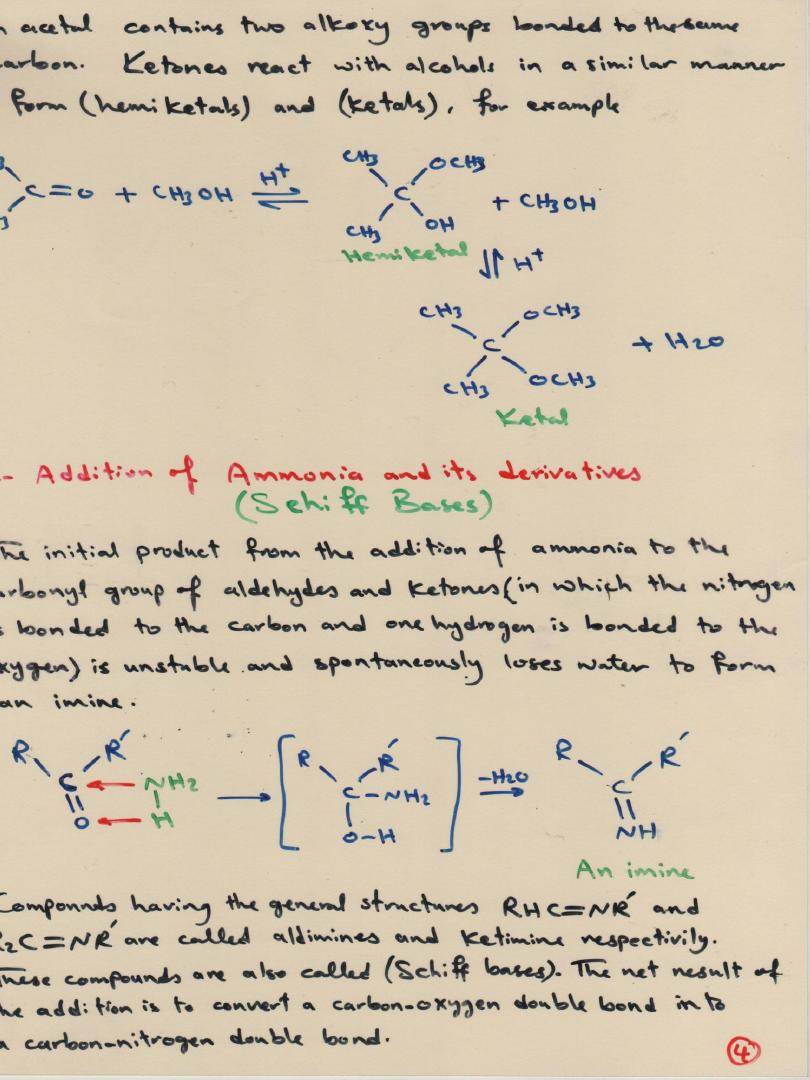 acetal contains two alkoxy groups bonded to the same
arbon. Ketones react with alcohols in a similar manner
form (hemiketals) and (ketals), for example
C=O + CH3OH H+ CH3 OCH3 C CH3 OH + CH3OH
Hemiketal H+
CH3 OCH3 C CH3 OCH3 + H2O
Ketal
- Addition of Ammonia and its derivatives
(Schiff Bases)
The initial product from the addition of ammonia to the
arbonyl group of aldehydes and ketones (in which the nitrogen
s bonded to the carbon and one hydrogen is bonded to the
xygen) is unstable and spontaneously loses water to form
an imine.
R R' C NH2 O H R R' C-NH2 O-H -H2O R R' C NH
An imine
Compounds having the general structures RHC=NR' and
R2C=NR' are called aldimines and Ketimine respectivily.
These compounds are also called (Schiff bases). The net result of
he addition is to convert a carbon-oxygen double bond in to
a carbon-nitrogen double bond.
4